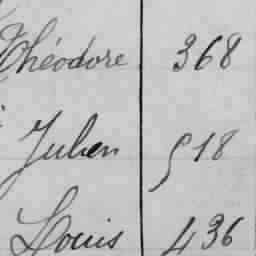 Théodore 368
Julien 518
Louis 436